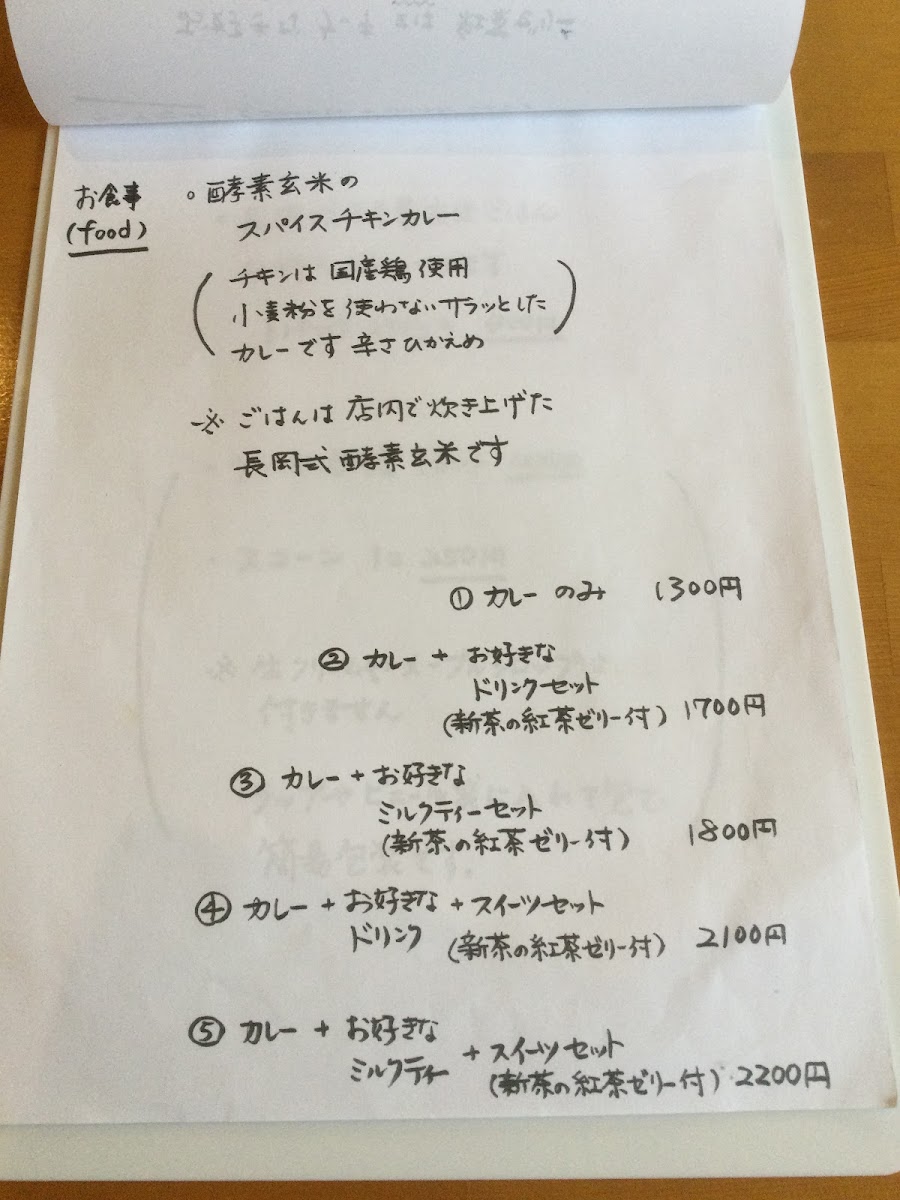 お食事
(food)
○ 酵素玄米の
スパイスチキンカレー
(チキンは 国産鶏 使用
小麦粉を使わないサラッとした
カレーです 辛さひかえめ)
※ ごはんは 店内で炊き上げた
長岡式 酵素玄米です
① カレー のみ 1300円
② カレー + お好きな
ドリンクセット
(新茶の紅茶ゼリー付) 1700円
③ カレー + お好きな
ミルクティーセット
(新茶の紅茶ゼリー付) 1800円
④ カレー + お好きな + スイーツセット
ドリンク (新茶の紅茶ゼリー付) 2100円
⑤ カレー + お好きな
ミルクティー + スイーツセット
(新茶の紅茶ゼリー付) 2200円